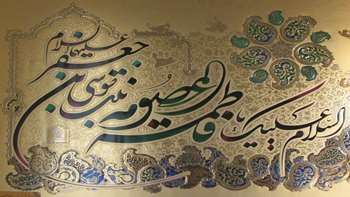 السلام علیک یا
فاطمة المعصومه
بنت موسی بن
جعفر
علیها السلام